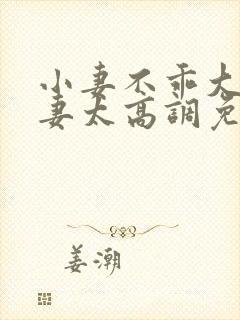 小妻不乖大
妻太高調免
姜潮